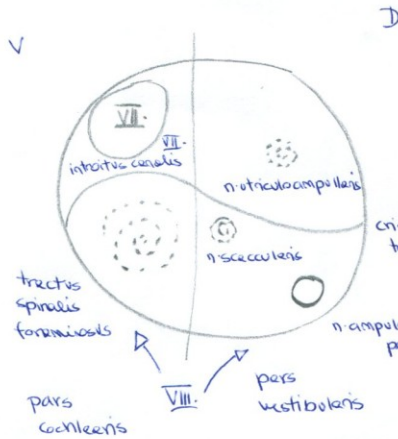 V
D
VII.
VII.
introitus canalis
n. utriculoampullaris
n. saccularis
tractus
spiralis
foraminosus
VIII.
pars
cochlearis
pars
vestibularis